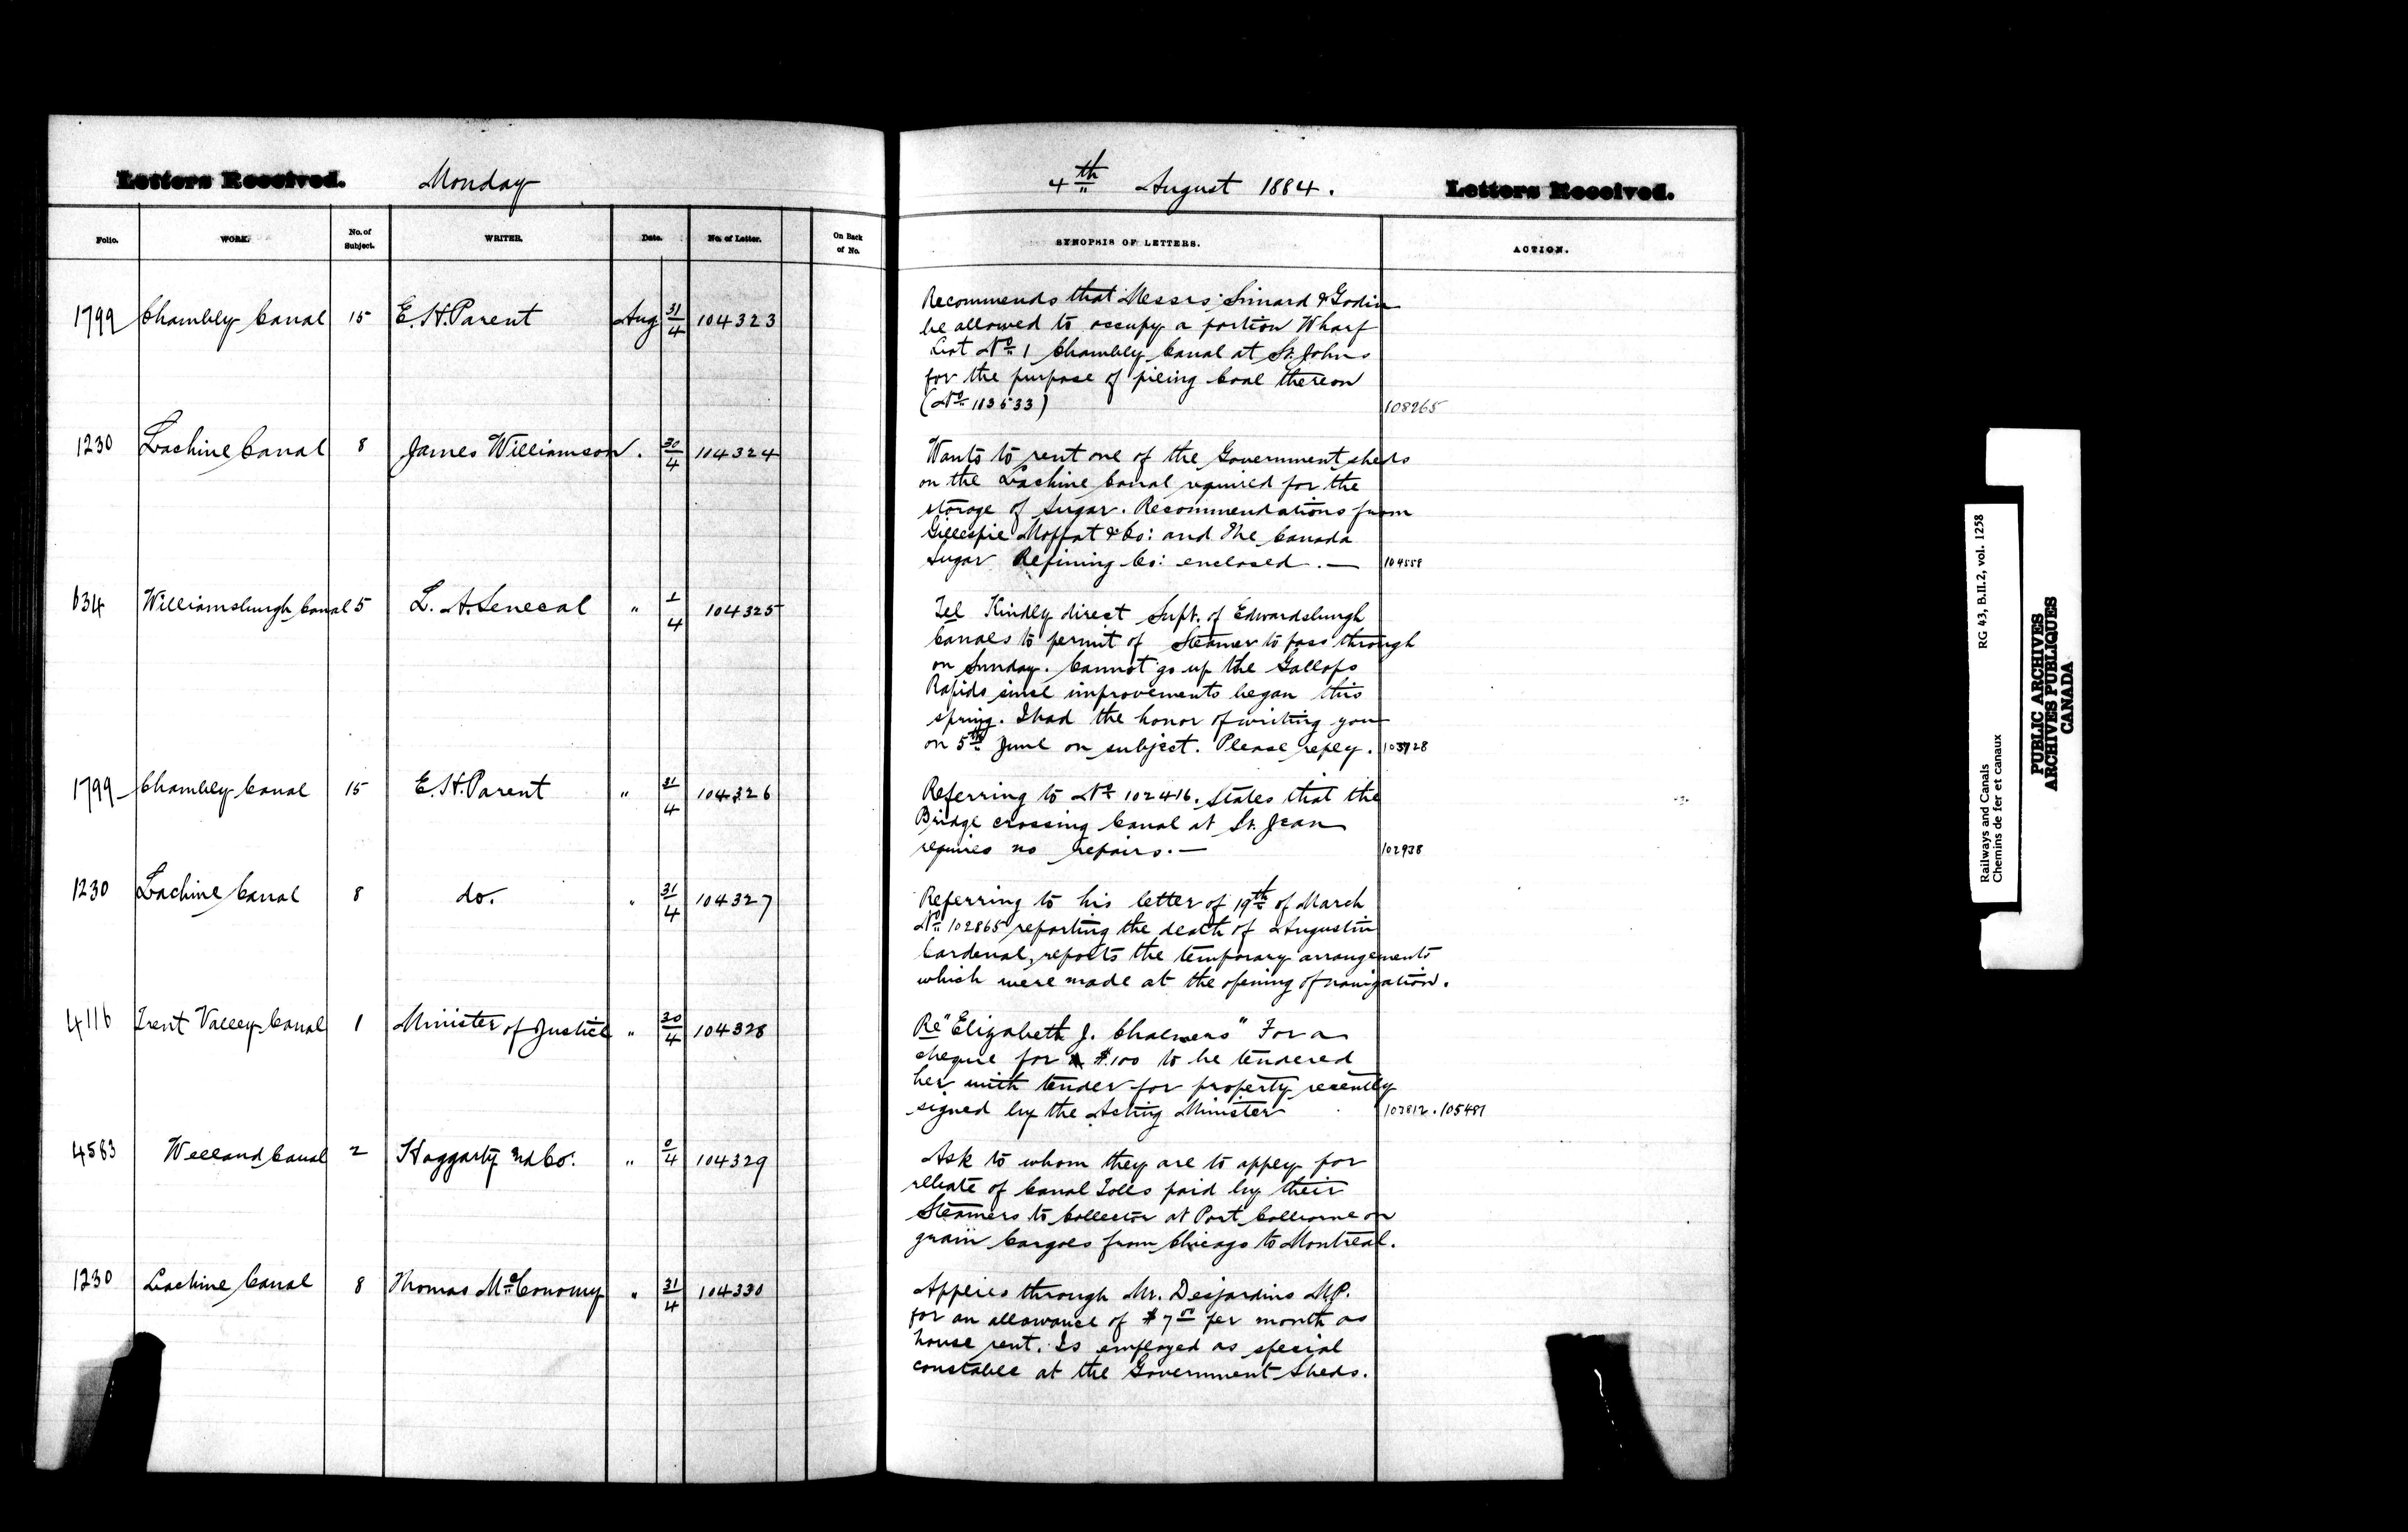 Letters Received. Monday
4th August 1884. Letters Received.
Folio. WORK. No. of Subject. WRITER. Date. No. of Letter. On Back of No.
SYNOPSIS OF LETTERS. ACTION.
1799 Chambly Canal 15 E. H. Parent Aug 31/4 104323
Recommends that Messrs: Simard & Godin
be allowed to occupy a portion Wharf
Lot No 1 Chambly Canal at St. Johns
for the purpose of piling Coal thereon
(No 103533) 108265
1230 Lachine Canal 8 James Williamson . 30/4 104324
Wants to rent one of the Government sheds
on the Lachine Canal required for the
storage of Sugar. Recommendations from
Gillespie Moffat & Co: and The Canada
Sugar Refining Co: enclosed. — 104558
634 Williamsburgh Canal 5 L. A. Senecal " 1/4 104325
Tel Kindly direct Supt. of Edwardsburgh
Canals to permit of Steamer to pass through
on Sunday. Cannot go up the Gallops
Rapids since improvements began this
spring. I had the honor of writing you
on 5th June on subject. Please reply. 103928
1799 Chambly Canal 15 E. H. Parent " 31/4 104326
Referring to No 102416. States that the
Bridge crossing Canal at St. Jean
requires no repairs. — 102938
1230 Lachine Canal 8 do. " 31/4 104327
Referring to his letter of 19th of March
No 102865 reporting the death of Augustin
Cardenal, reports the temporary arrangements
which were made at the opening of navigation.
4116 Trent Valley Canal 1 Minister of Justice " 30/4 104328
Re "Elizabeth J. Chalmers" For a
cheque for $100 to be tendered
her with tender for property recently
signed by the Acting Minister 103812. 105481
4583 Welland Canal 2 Haggarty and Co: " 0/4 104329
Ask to whom they are to apply for
rebate of Canal Tolls paid by their
Steamers to Collector at Port Colborne on
grain Cargoes from Chicago to Montreal.
1230 Lachine Canal 8 Thomas McConomy " 31/4 104330
Applies through Mr. Desjardins M.P.
for an allowance of $7 00 per month as
house rent. Is employed as special
constable at the Government Sheds.
Railways and Canals RG 43, B.II.2, vol. 1258
Chemins de fer et canaux
PUBLIC ARCHIVES
ARCHIVES PUBLIQUES
CANADA